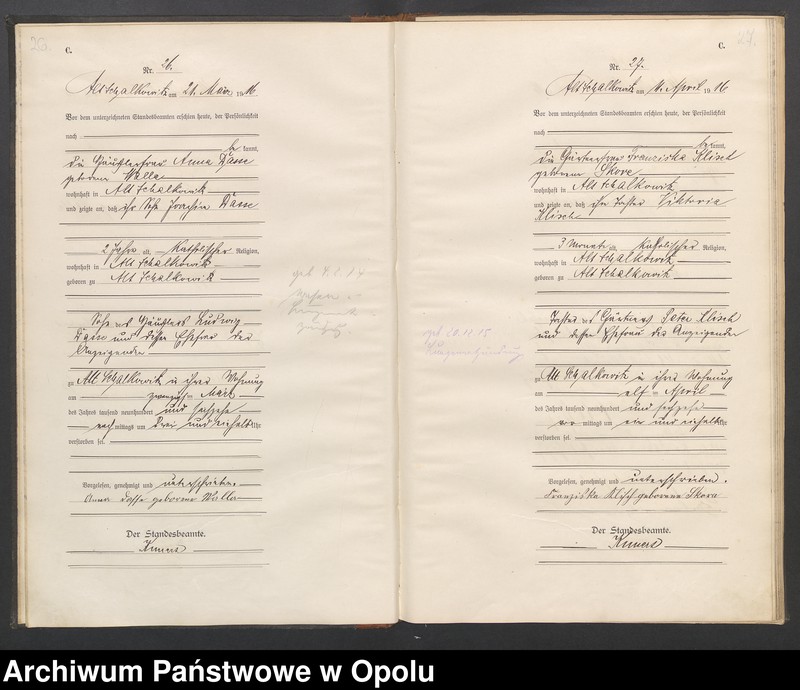 26.
C.
Nr. 26.
Alt Schalkowitz am 21. März 1916
Vor dem unterzeichneten Standesbeamten erschien heute, der Persönlichkeit
nach
be kannt,
die Häuslerfrau Anna Dasse
geborene Walla
wohnhaft in Alt Schalkowitz
und zeigte an, daß ihr Sohn Joachim Dasse
2 Jahre alt, Katholischer Religion,
wohnhaft in Alt Schalkowitz
geboren zu Alt Schalkowitz
Sohn des Häuslers Ludwig
Dasse und dessen Ehefrau der
Anzeigenden
zu Alt Schalkowitz in ihrer Wohnung
am März
des Jahres tausend neunhundert und sechzehn
nach mittags um drei und Uhr
verstorben sei.
Vorgelesen, genehmigt und unterschrieben.
Anna Dasse geborene Walla
Der Standesbeamte.
27.
C.
Nr. 27.
Alt Schalkowitz am April 1916
Vor dem unterzeichneten Standesbeamten erschien heute, der Persönlichkeit
nach
be kannt,
die Gärtnerfrau Franziska Klisch
geborene Skora
wohnhaft in Alt Schalkowitz
und zeigte an, daß ihre Tochter Viktoria
Klisch
3 Monate Katholischer Religion,
wohnhaft in Alt Schalkowitz
geboren zu Alt Schalkowitz
Tochter des Gärtners Peter Klisch
und dessen Ehefrau der Anzeigenden
geb 20.11.15
zu Alt Schalkowitz in ihrer Wohnung
am elf April
des Jahres tausend neunhundert und sechzehn
vor mittags um ein und Uhr
verstorben sei.
Vorgelesen, genehmigt und unterschrieben.
Franziska Klisch geborene Skora
Der Standesbeamte.
Archiwum Państwowe w Opolu